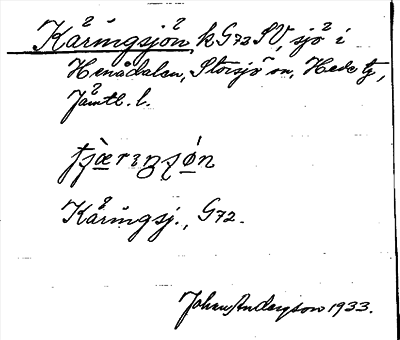 Käringsjön, k G73 SV, sjö i
Henådalen, Storsjö sn, Hede tg,
Jämtl. l.
tjæ̀rıŋʃǿn
Käringsj., G72.
Johan Anderson 1933.